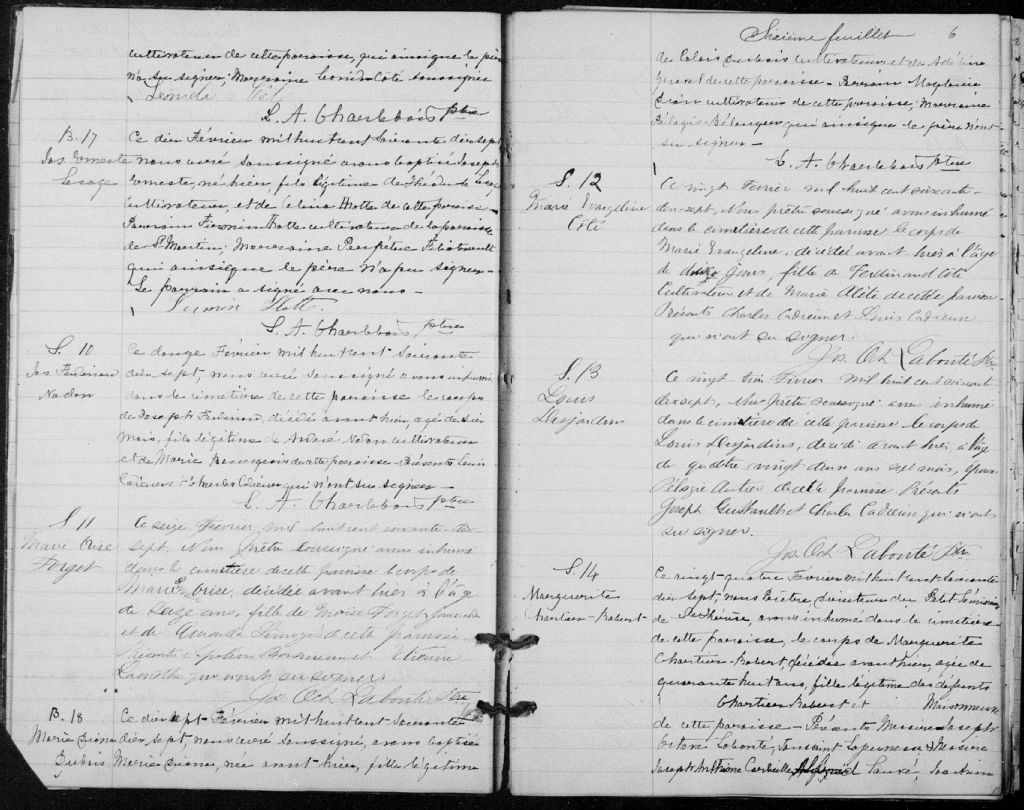 cultivateur de cette paroisse, qui ainsi que le père
n'a su signer; Marraine Leonide Coté soussignée
Leonide Coté
L. A. Charlebois Ptre
B. 17
Jos Erneste
Lesage
Ce dix Février mil huit cent Soixante dix sept
nous curé soussigné avons baptisé Joseph
Erneste, né hier, fils légitime de
cultivateur, et de Celina Hotte de cette paroisse -
Parrain Firmin Hotte cultivateur de la paroisse
de St Martin; Marraine Perpétue Filiatreault
qui ainsi que le père n'a pu signer -
Le parrain a signé avec nous -
Firmin Hotte
L. A. Charlebois Ptre
S. 10
Jos Ferdinand
Nadon
Ce douze Février mil huit cent Soixante
dix sept, nous curé soussigné avons inhumé
dans le cimetière de cette paroisse le corps
de Joseph Ferdinand, décédé avant hier agé de six
mois, fils légitime de André Nadon cultivateur
et de Marie Bourgeois de cette paroisse Présents Louis
Cadieux & Charles Cadieux qui n'ont su signer -
L. A. Charlebois Ptre
S 11
Marie Orise
Forget
Ce seize Février mil huit cent soixante dix
sept, Nous prêtre soussigné avons inhumé
dans le cimetière de cette paroisse le corps de
Marie Orise, décédée avant hier à l'âge
de seize ans, fille de Moïse Forget
et de Amanda Limoges de cette paroisse
Présents Napoléon et Etienne
Lamothe qui n'ont su signer.
Jos Oct Labonté Ptre
B. 18
Marie Diana
Dubois
Ce dix sept Février mil huit cent Soixante
dix sept, nous curé soussigné, avons baptisé
Marie Diana, née avant hier, fille légitime
Sixième feuillet 6
de Calais Dubois cultivateur et de Adélina
de cette paroisse - Parrain Magloire
cultivateur de cette paroisse; Marraine
Pélagie Bélanger qui ainsi que le père n'ont
su signer -
L. A. Charlebois Ptre
S. 12
Marie Evangeline
Coté
Ce vingt Février mil huit cent soixante-
dix-sept, Nous prêtre soussigné avons inhumé
dans le cimetière de cette paroisse le corps de
Marie Evangeline, décédée avant hier à l'âge
de jours, fille de Ferdinand Coté
Cultivateur et de Marie de cette paroisse
Présents Charles Cadieux et Louis Cadieux
qui n'ont su signer.
Jos. Oct Labonté Ptre
S. 13
Louis
Desjardins
Ce vingt Février mil huit cent soixante
dix sept, Nous prêtre soussigné avons inhumé
dans le cimetière de cette paroisse le corps de
Louis Desjardins, décédé avant hier à l'âge
de quatre vingt ans sept mois, Epoux
Pélagie de cette paroisse Présents
Joseph et Charles Cadieux qui n'ont
su signer.
Jos Oct Labonté Ptre
S. 14
Marguerite
Chartier-Robert
Ce vingt-quatre Février mil huit cent Soixante
dix sept, nous Prêtre, directeur du Petit Séminaire
de Ste Thérèse, avons inhumé dans le cimetière
de cette paroisse, le corps de Marguerite
Chartier-Robert, décédée avant hier, agée de
quarante huit ans, fille légitime des défunts
Chartier Robert et Maisonneuve
de cette paroisse - Présents Messire Joseph
Octave Labonté, Toussaint Lapeunesse Messire
Joseph Anthime Corbeille,